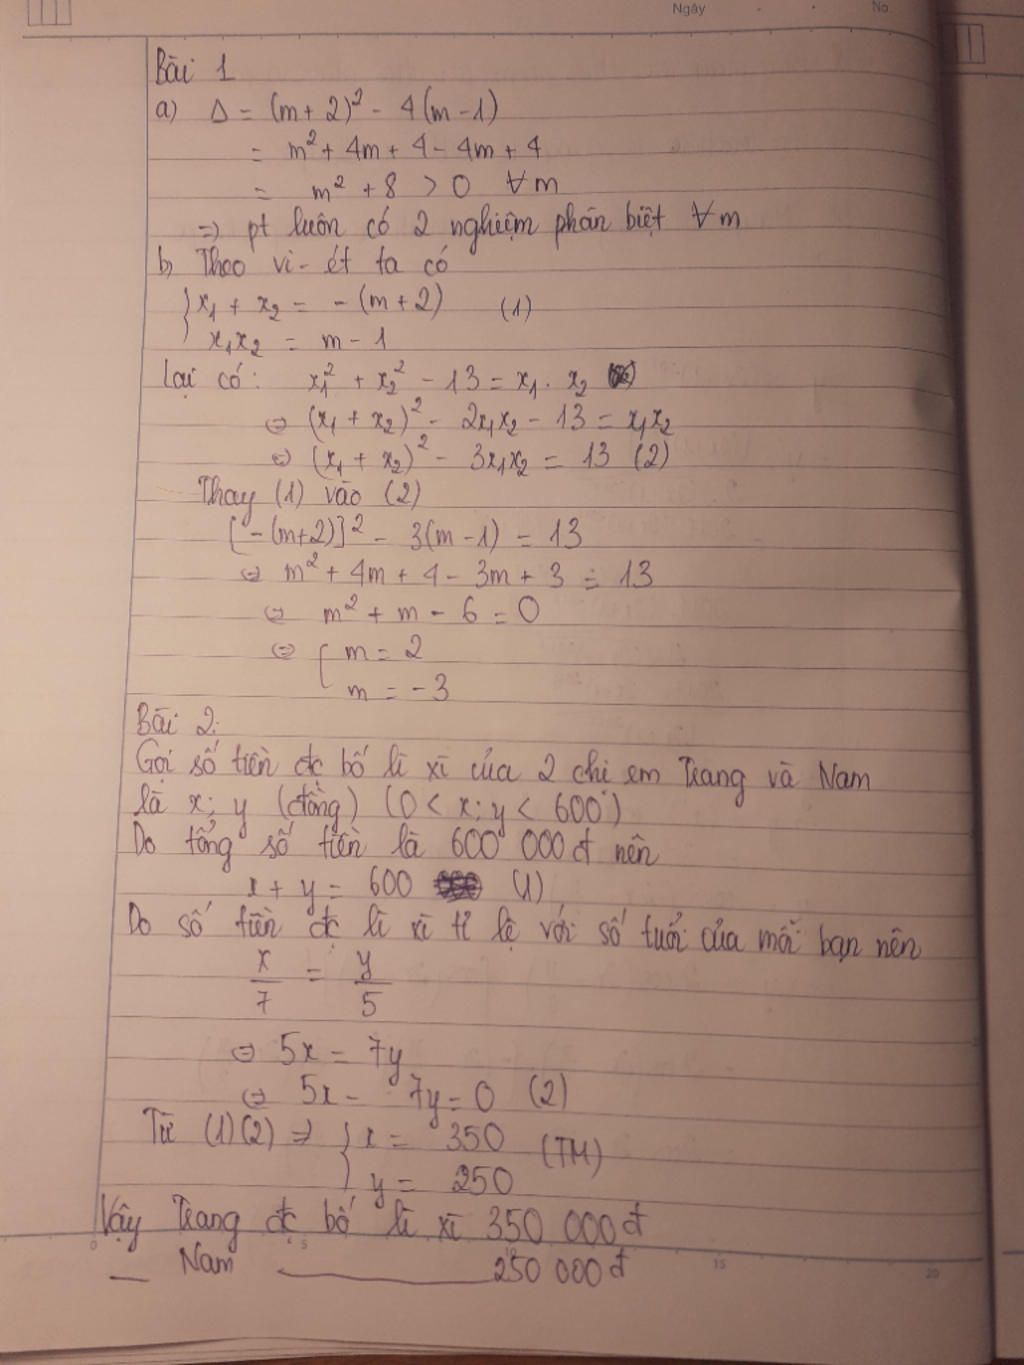 Ngày . . No.
Bài 1
a) Δ = (m + 2)² - 4(m - 1)
= m² + 4m + 4 - 4m + 4
= m² + 8 > 0 ∀m
=> pt luôn có 2 nghiệm phân biệt ∀m
b, Theo vi-ét ta có
{ x₁ + x₂ = - (m + 2) (1)
x₁x₂ = m - 1
Lại có: x₁² + x₂² - 13 = x₁ . x₂
⇔ (x₁ + x₂)² - 2x₁x₂ - 13 = x₁x₂
⇔ (x₁ + x₂)² - 3x₁x₂ = 13 (2)
Thay (1) vào (2)
[-(m+2)]² - 3(m - 1) = 13
⇔ m² + 4m + 4 - 3m + 3 = 13
⇔ m² + m - 6 = 0
⇔ [ m = 2
m = -3
Bài 2:
Gọi số tiền đc bố lì xì của 2 chị em Trang và Nam
là x; y (đồng) (0 < x; y < 600)
Do tổng số tiền là 600 000đ nên
x + y = 600 (1)
Do số tiền đc lì xì tỉ lệ với số tuổi của mỗi bạn nên
x/7 = y/5
⇔ 5x = 7y
⇔ 5x - 7y = 0 (2)
Từ (1)(2) => { x = 350 (TM)
y = 250
Vậy Trang đc bố lì xì 350 000đ
— Nam ——— 250 000đ
0 5 10 15 20